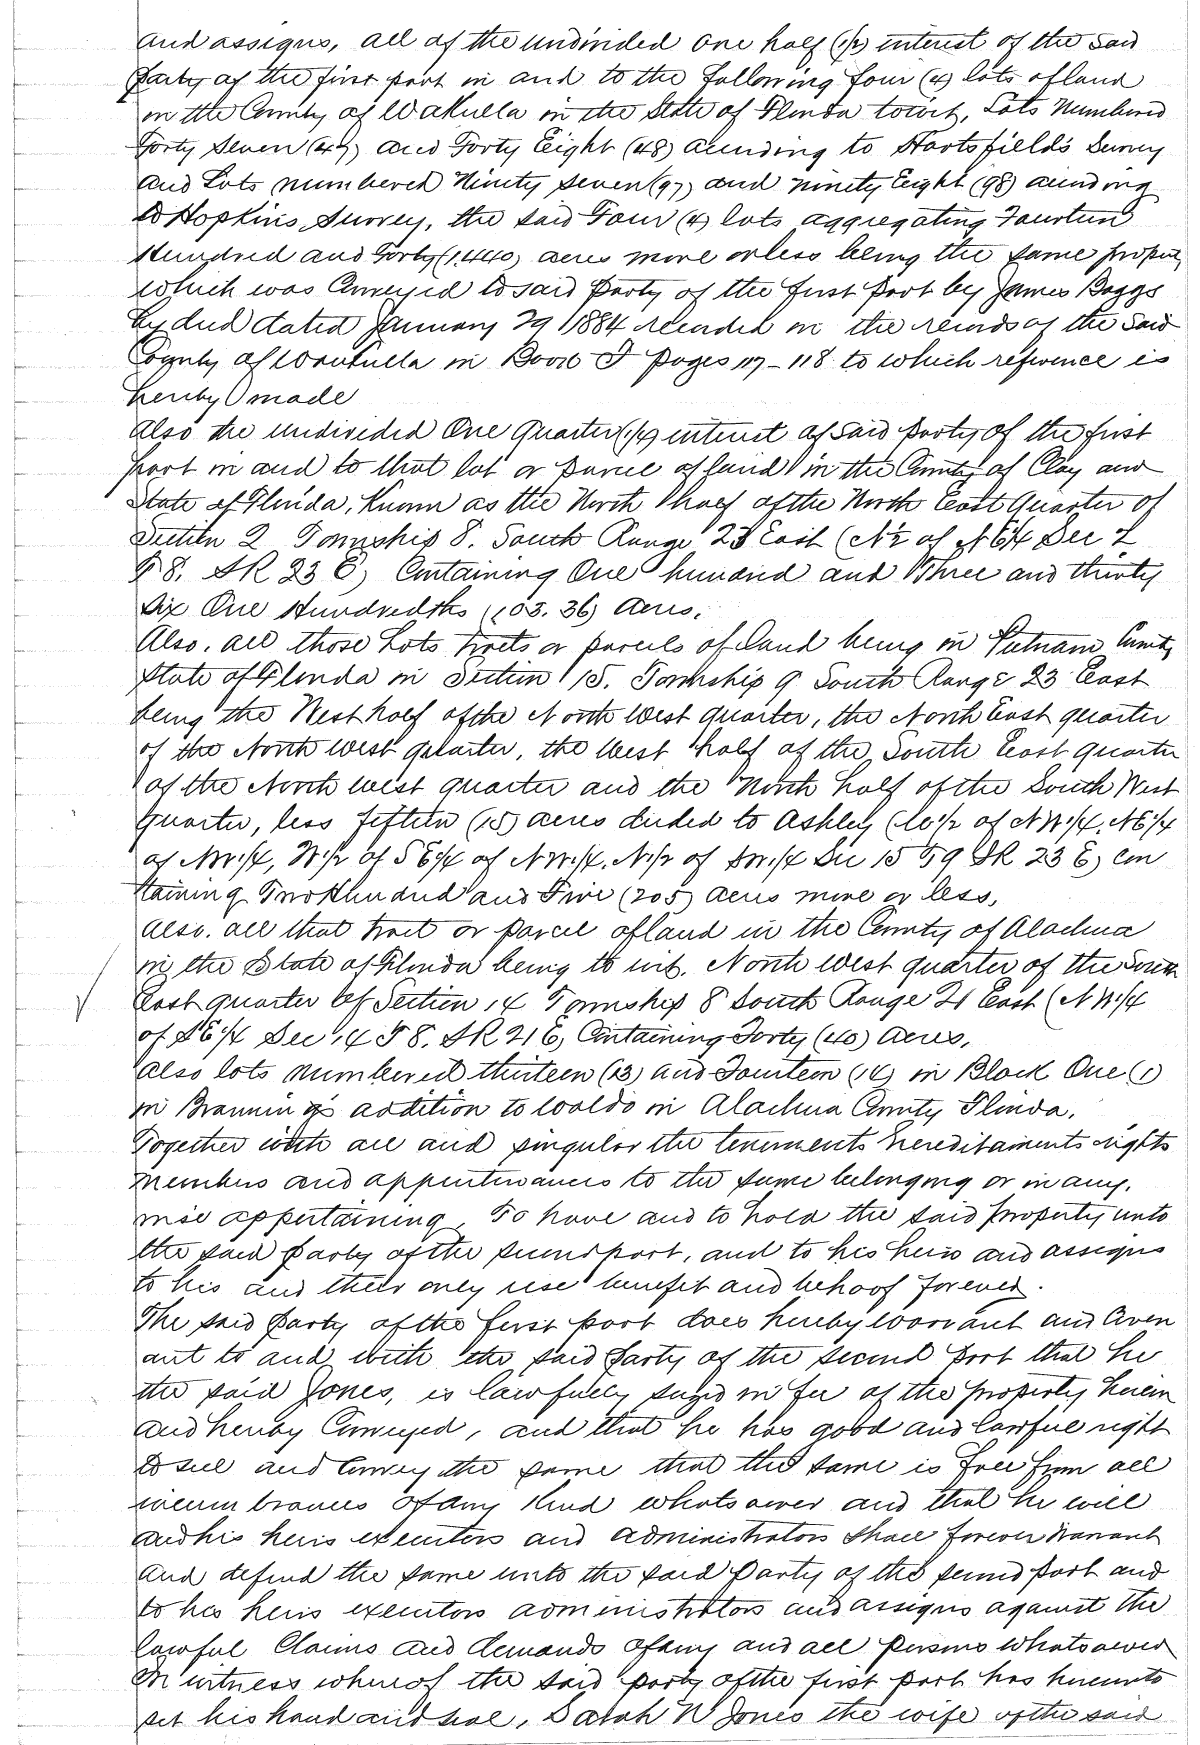 and assigns, all of the undivided one half (1/2) interest of the said
party of the first part in and to the following four (4) lots of land
in the County of Wakulla in the State of Florida towit, Lots Numbered
Forty Seven (47) and Forty Eight (48) according to Hartsfield's Survey
and Lots numbered Ninety Seven (97) and Ninety Eight (98) according
to Hopkins Survey, the said Four (4) lots aggregating Fourteen
Hundred and Forty (1440) acres more or less being the same property
which was Conveyed to said Party of the First Part by James Boggs
by deed dated January 29 1884 recorded in the records of the said
County of Wakulla in Book I pages 117-118 to which reference is
hereby made
Also the undivided One Quarter (1/4) interest of said Party of the first
part in and to that lot or parcel of land in the County of Clay and
State of Florida, Known as the North half of the North East Quarter of
Section 2 Township 8. South Range 23 East (N1/2 of NE1/4 Sec 2
T 8. SR 23 E) Containing One hundred and Three and thirty
six One Hundredths (103.36) Acres.
Also. all those Lots tracts or parcels of land being in Putnam County
State of Florida in Section 15. Township 9 South Range 23 East
being the West half of the North West quarter, the North East quarter
of the North West quarter, the West half of the South East quarter
of the North West quarter and the North half of the South West
quarter, less fifteen (15) acres deeded to Ashley (W1/2 of NW1/4, NE1/4
of NW1/4, W1/2 of SE1/4 of NW1/4, N1/2 of SW1/4 Sec 15 T9 SR 23 E) con
taining Two Hundred and Five (205) acres more or less,
Also. all that tract or parcel of land in the County of Alachua
in the State of Florida being to wit. North West quarter of the South
East quarter of Section 14 Township 8 South Range 21 East (NW1/4
of SE1/4 Sec 14 T 8. SR 21 E) Containing Forty (40) acres,
Also lots numbered thirteen (13) and Fourteen (14) in Block One (1)
in Branning's addition to Waldo in Alachua County Florida.
Together with all and singular the tenements hereditaments rights
members and appurtenances to the same belonging or in any.
wise appertaining, To have and to hold the said property unto
the said party of the second part, and to his heirs and assigns
to his and their only use benefit and behoof forever.
The said Party of the first part does hereby warrant and Coven
ant to and with the said Party of the second Part that he
the said Jones, is lawfully seized in fee of the property herein
and hereby Conveyed, and that he has good and lawful right
to sell and Convey the same that the same is free from all
incumbrances of any Kind whatsoever and that he will
and his heirs executors and administrators shall forever warrant
and defend the same unto the said Party of the second part and
to his heirs executors administrators and assigns against the
lawful Claims and demands of any and all persons whatsoever
In witness whereof the said party of the first part has hereunto
set his hand and seal, Sarah W Jones the wife of the said